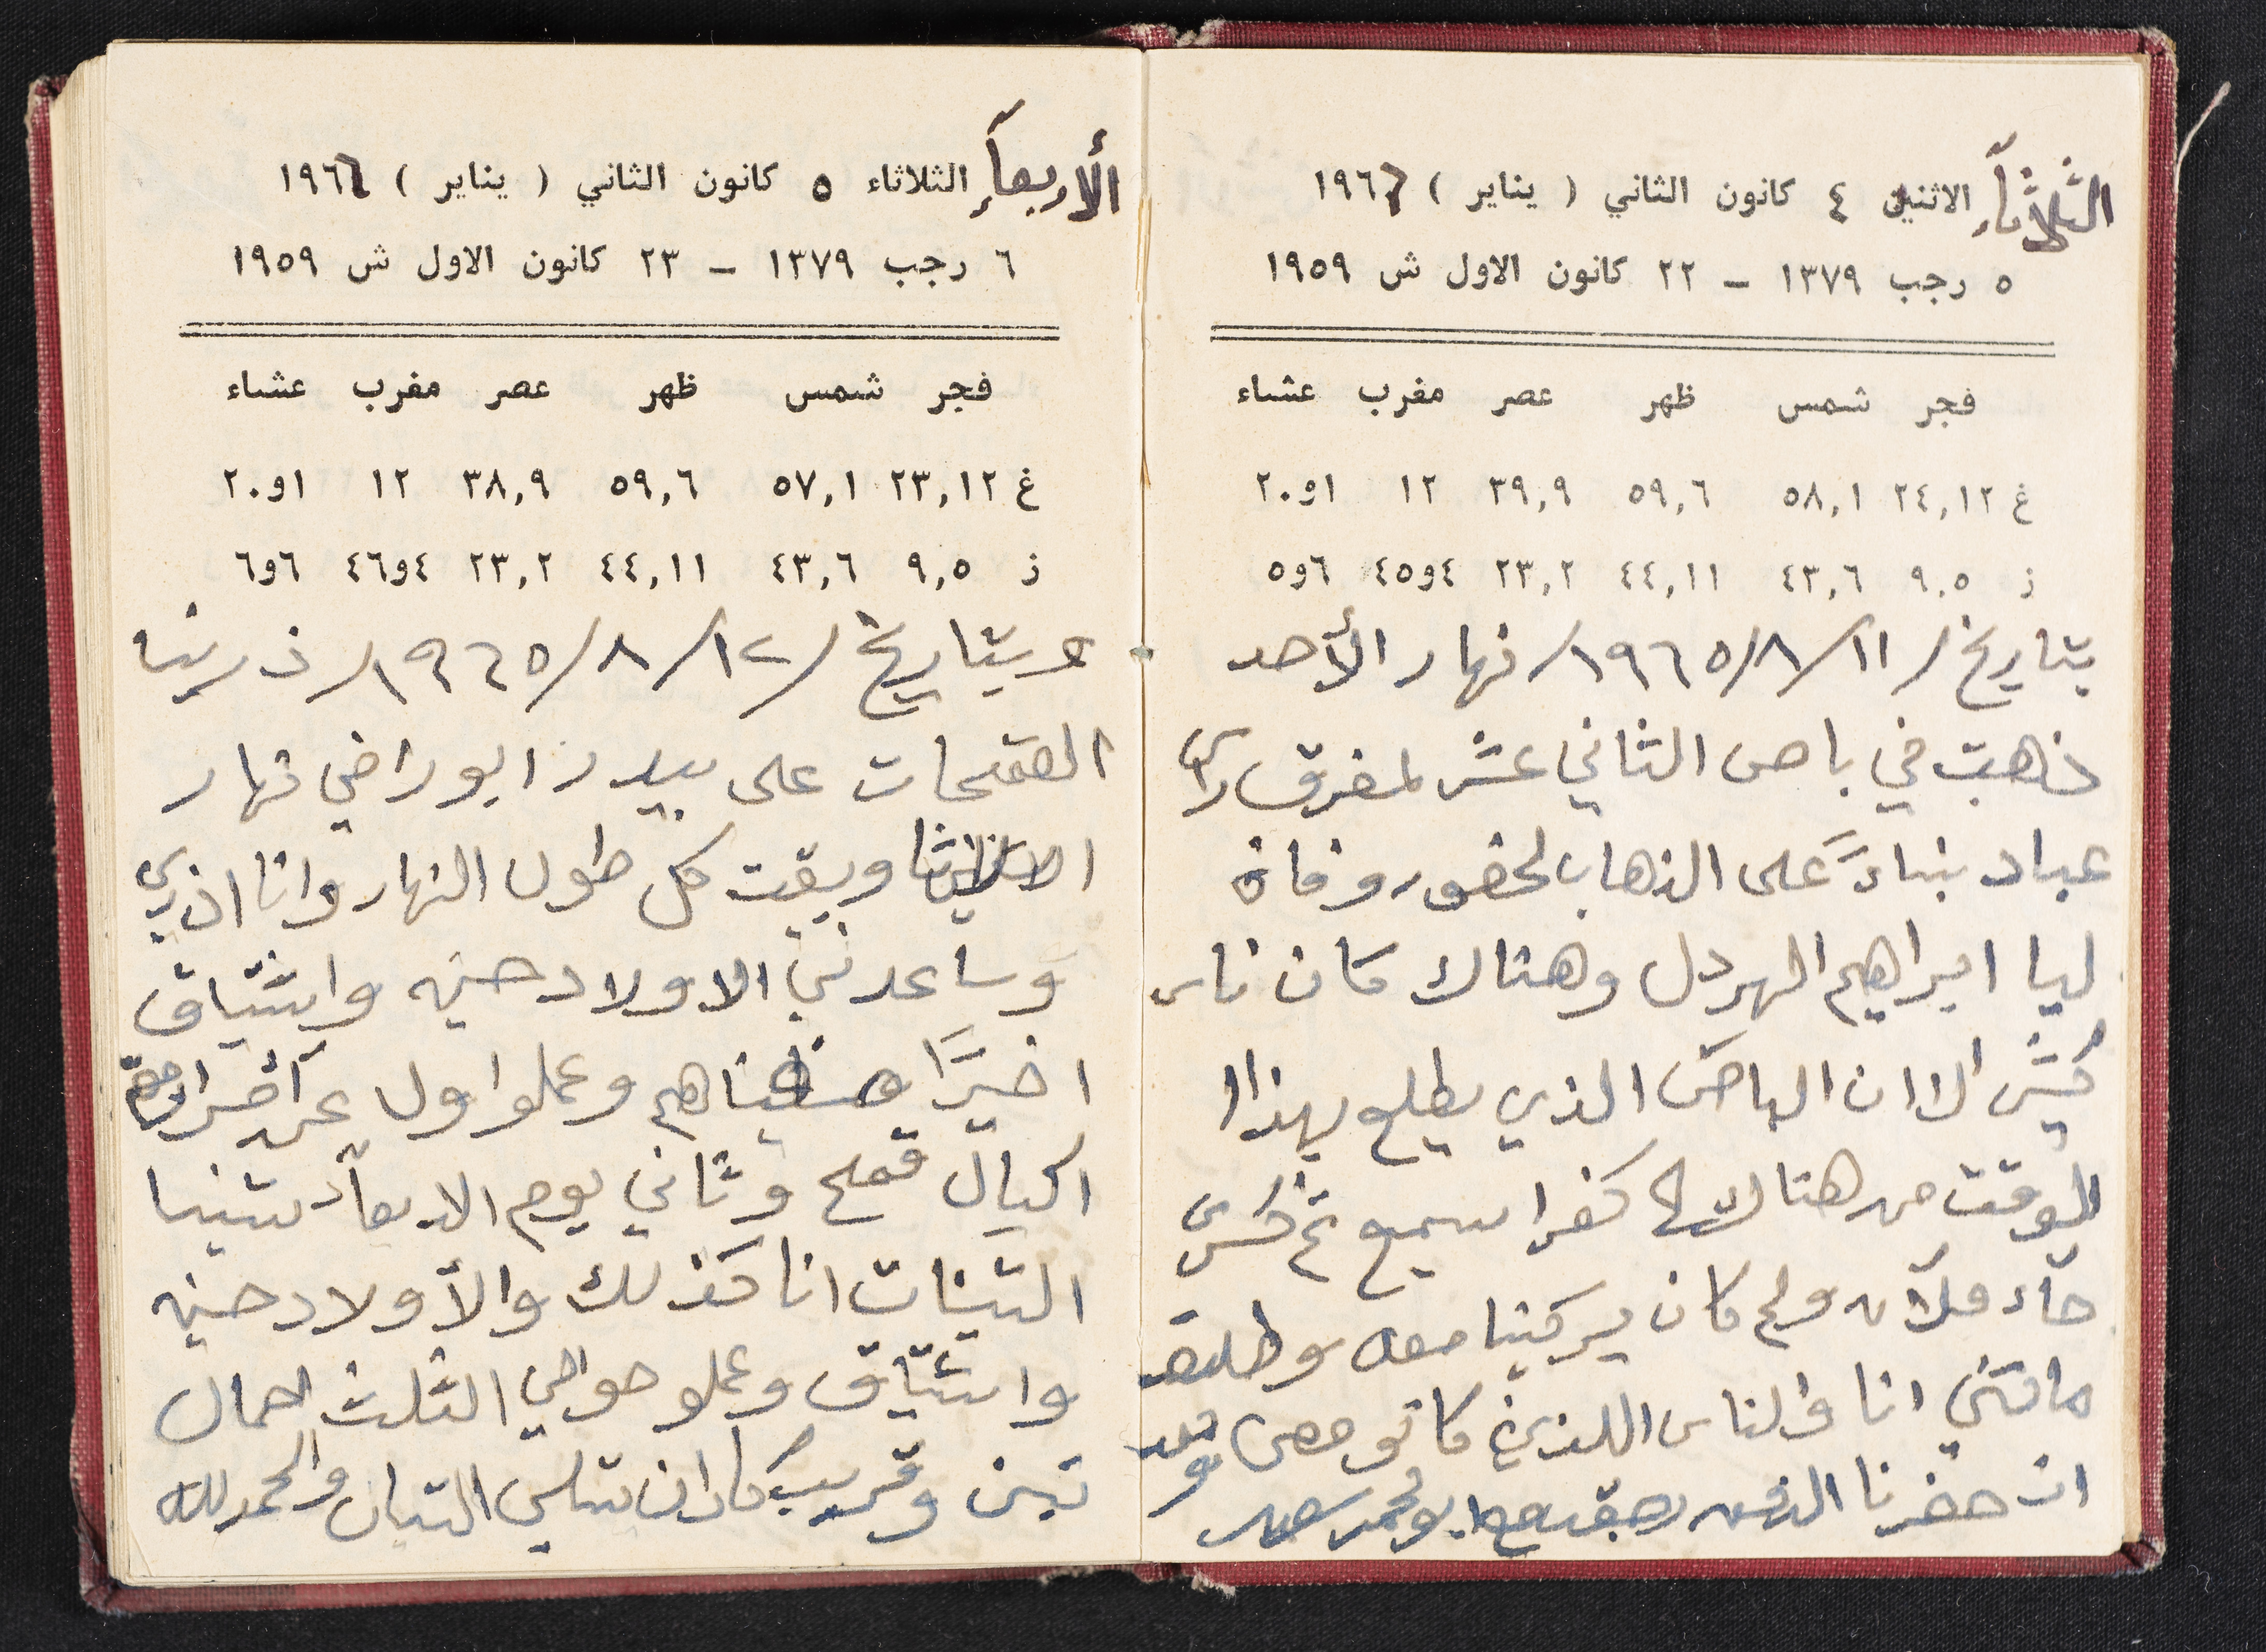 الثلاثاء الاثنين ٤ كانون الثاني ( يناير ) ١٩٦
٥ رجب ١٣٧٩ – ٢٢ كانون الاول ش ١٩٥٩
فجر شمس ظهر عصر مغرب عشاء
غ ٢٤,١٢ ٥٨,١ ٥٩,٦ ٣٩,٩ ١٢ ١و٢٠
ز ٩,٥ ٤٣,٦ ٤٤,١١ ٢٣,٢ ٤و٤٥ ٦و٥
بتاريخ /١١/ ٨/ ١٩٦٥/ نهار الأحد
ذهبت في باص الثاني عشر لمفرق
عباد بناءً على الذهاب لحضور وفاة
ليا ابراهيم الهردل وهناك كان ناس
كُثر الا ان الباص الذي يطلع بهذا
الوقت من هناك كفرا سميع
جاء ملآن ولم كان يركبنا معه
انا والناس اللذين كانو معي
ان حضرنا ابو محمد سعيد
الأربعاء الثلاثاء ٥ كانون الثاني ( يناير ) ١٩٦
٦ رجب ١٣٧٩ – ٢٣ كانون الاول ش ١٩٥٩
فجر شمس ظهر عصر مغرب عشاء
غ ٢٣,١٢ ٥٧,١ ٥٩,٦ ٣٨,٩ ١٢ ١و٢٠
ز ٩,٥ ٤٣,٦ ٤٤,١١ ٢٣,٢ ٤و٤٦ ٦و٦
وبتاريخ /١٢/ ٨/ ١٩٦٥/ ذرينا
القمحات على بيدر ابو راضي نهار
وبقيت كل طول النهار وانا اذري
وساعدني الاولاد حنيه واشتياق
اخيرًا وعملوا
اكيال قمح وثاني يوم الاربعاء تبنينا
التبنات انا كذلك والأولاد حنيه
واشتياق وعملو حوالي الثلث احمال
تبن وقريب كان ان التبان والحمد لله